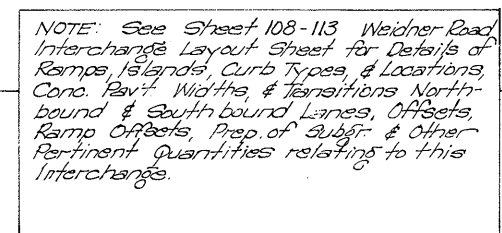 NOTE: See Sheet 108-113 Weidner Road
Interchange Layout Sheet for Details of
Ramps, Islands, Curb Types, & Locations,
Conc. Pav't. Widths, & Transitions North-
bound & Southbound Lanes, Offsets,
Ramp Offsets, Prep. of Subgr. & Other
Pertinent Quantities relating to this
Interchange.